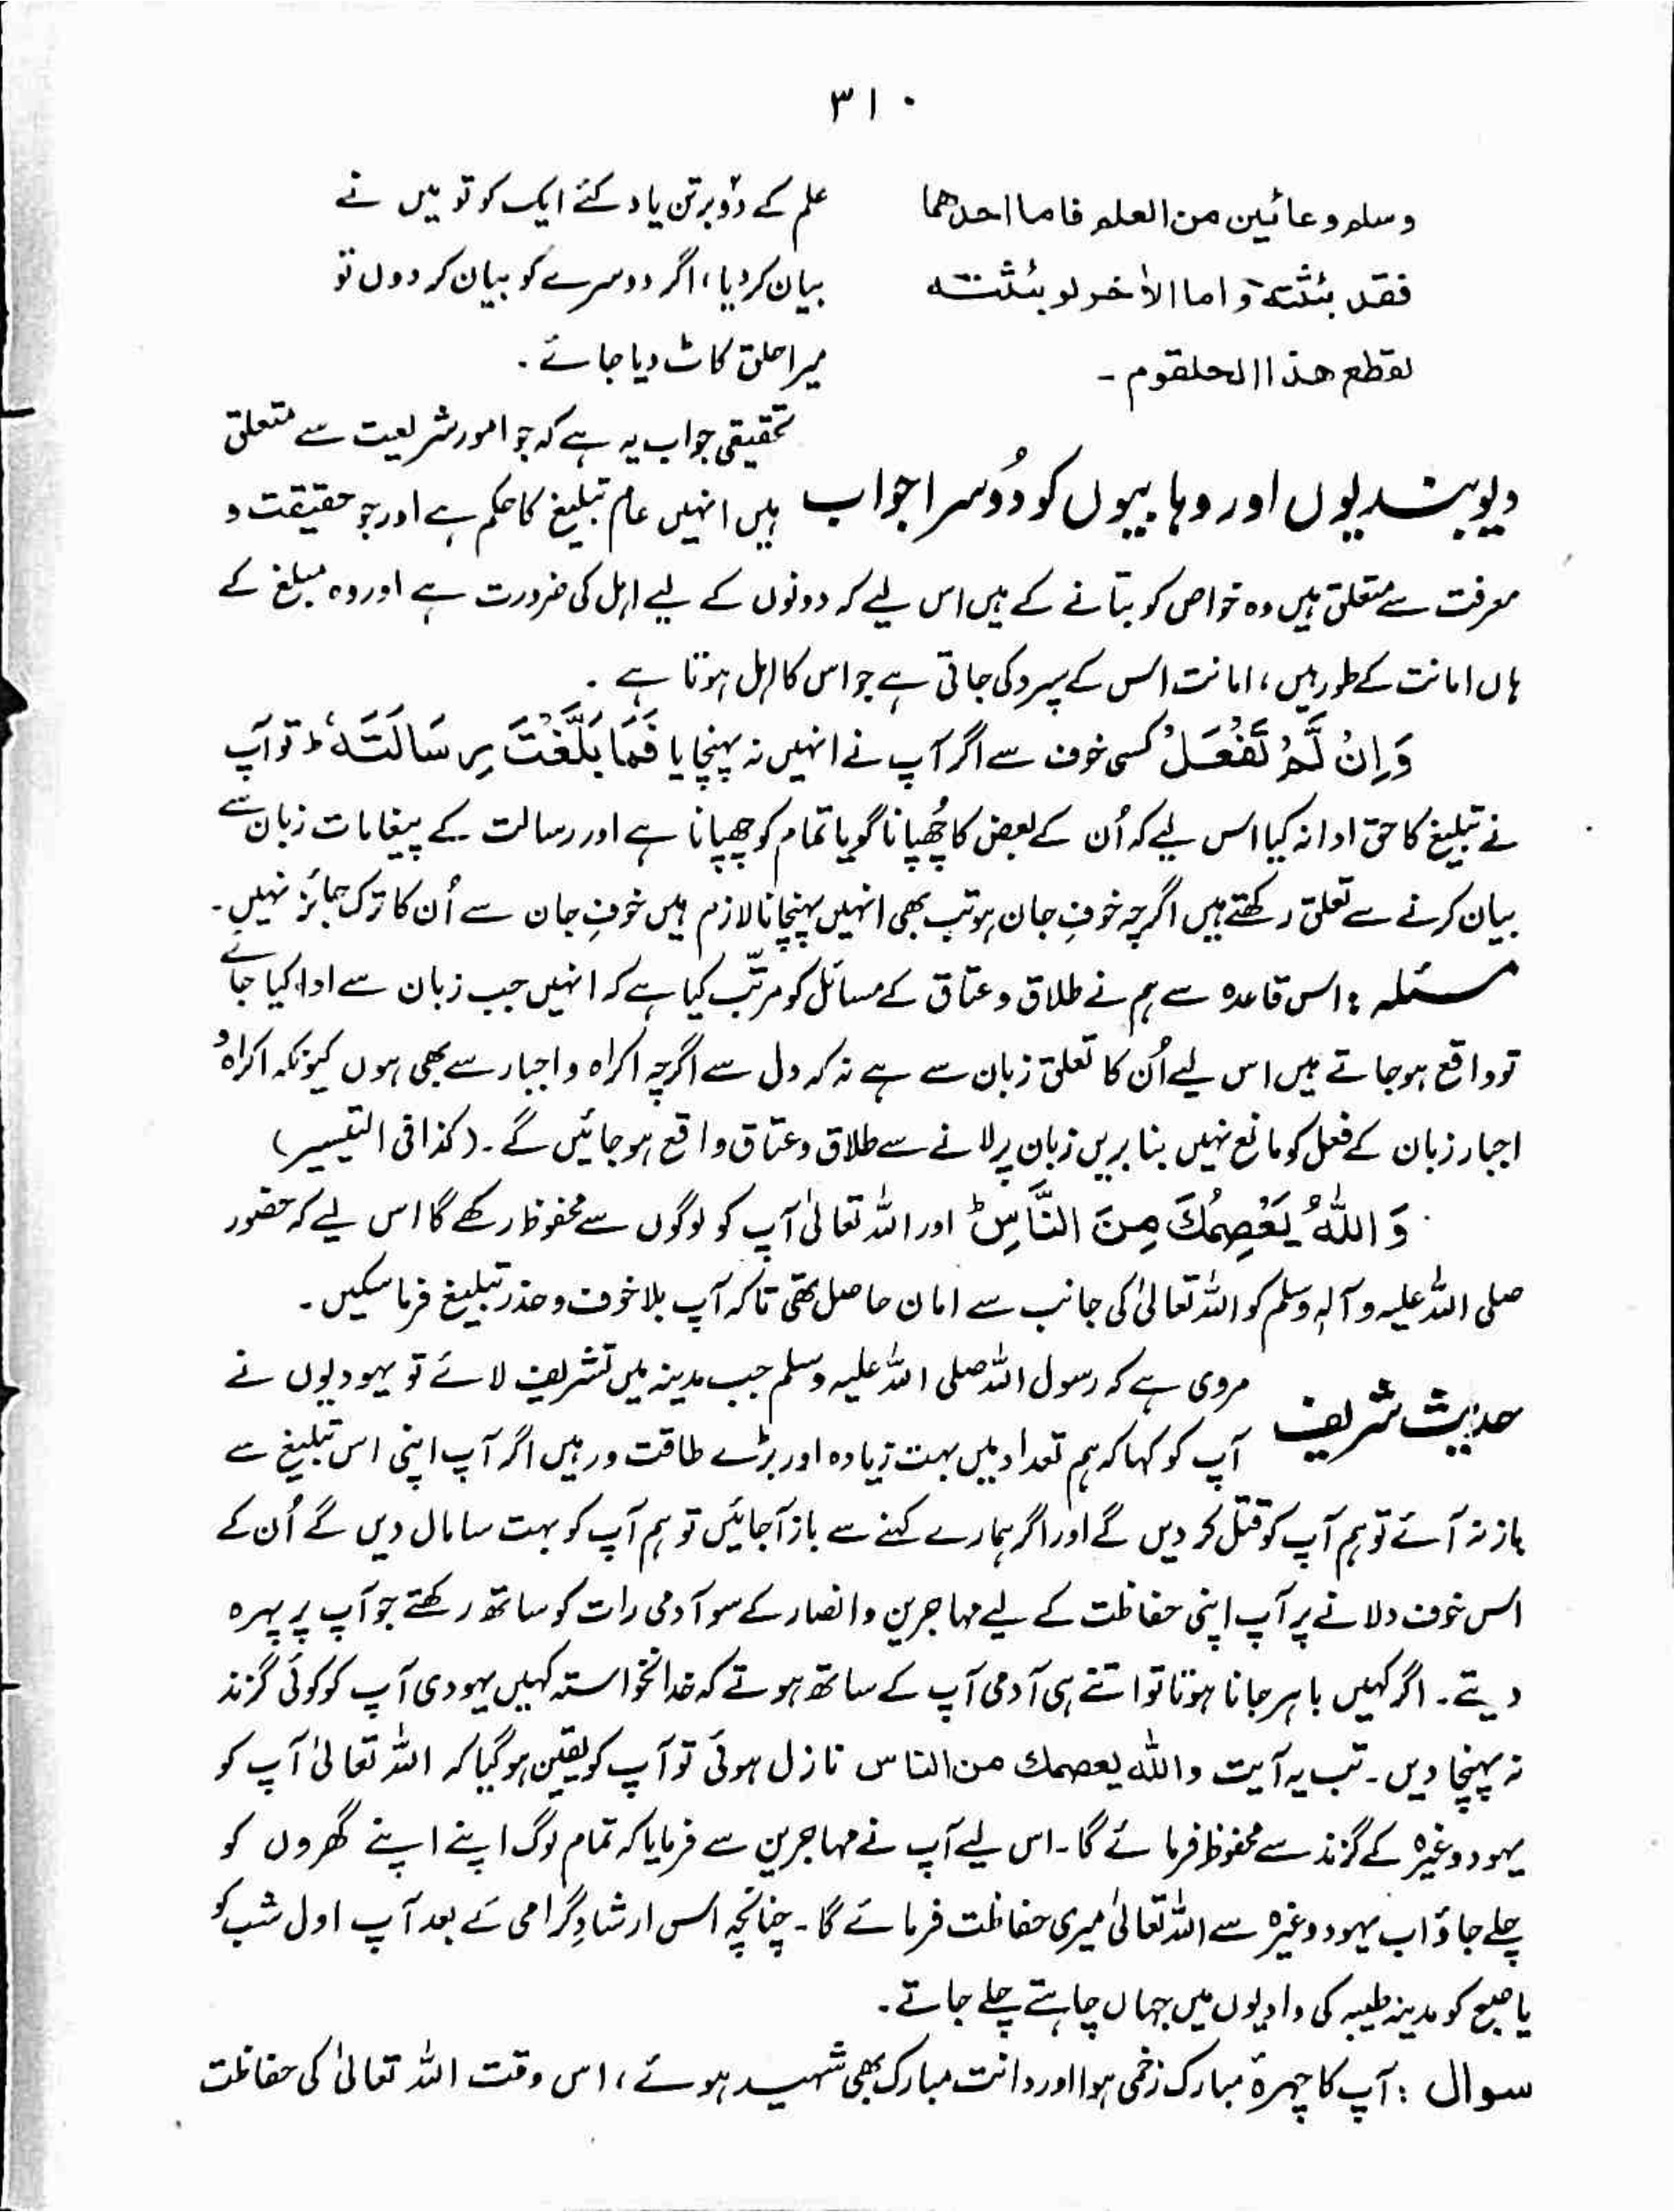 ۳۱۰
وسلم وعائین من العلم فاما احدھما
علم کے دو برتن یاد کئے ایک کو تو میں نے
فقد بثثتہ و اما الاٰخر لو بثثتہ
بیان کر دیا، اگر دوسرے کو بیان کر دوں تو
لقطع ھذا الحلقوم ۔
میرا حلق کاٹ دیا جائے ۔
تحقیقی جواب یہ ہے کہ جو امور شریعت سے متعلق
دیوبندیوں اور وہابیوں کو دُوسرا جواب
ہیں انہیں عام تبلیغ کا حکم ہے اور جو حقیقت و
معرفت سے متعلق ہیں وہ خواص کو بتانے کے ہیں اس لیے کہ دونوں کے لیے اہل کی ضرورت ہے اور وہ مبلغ کے
ہاں امانت کے طور ہیں، امانت اس کے سپرد کی جاتی ہے جو اس کا اہل ہوتا ہے ۔
وَاِنْ لَّمْ تَفْعَلْ کسی خوف سے اگر آپ نے انہیں نہ پہنچایا فَمَا بَلَّغْتَ رِسَالَتَهٗ ط تو آپ
نے تبلیغ کا حق ادا نہ کیا اس لیے کہ اُن کے بعض کا چُھپانا گویا تمام کو چھپانا ہے اور رسالت کے پیغامات زبان سے
بیان کرنے سے تعلق رکھتے ہیں اگرچہ خوفِ جان ہو تب بھی انہیں پہنچانا لازم ہیں خوفِ جان سے اُن کا ترک جائز نہیں ۔
مسئلہ : اس قاعدہ سے ہم نے طلاق و عتاق کے مسائل کو مرتّب کیا ہے کہ انہیں جب زبان سے ادا کیا جائے
تو واقع ہو جاتے ہیں اس لیے اُن کا تعلق زبان سے ہے نہ کہ دل سے اگرچہ اکراہ و اجبار سے بھی ہوں کیونکہ اکراہ و
اجبار زبان کے فعل کو مانع نہیں بنا بریں زبان پر لانے سے طلاق و عتاق واقع ہو جائیں گے ۔ (کذا فی التیسیر)
وَاللّٰهُ يَعْصِمُكَ مِنَ النَّاسِ ط اور اللہ تعالیٰ آپ کو لوگوں سے محفوظ رکھے گا اس لیے کہ حضور
صلی اللہ علیہ و آلہٖ وسلم کو اللہ تعالیٰ کی جانب سے امان حاصل تھی تاکہ آپ بلا خوف و حذر تبلیغ فرما سکیں ۔
مروی ہے کہ رسول اللہ صلی اللہ علیہ وسلم جب مدینہ میں تشریف لائے تو یہودیوں نے
حدیث شریف
آپ کو کہا کہ ہم تعداد میں بہت زیادہ اور بڑے طاقت ور ہیں اگر آپ اپنی اس تبلیغ سے
باز نہ آئے تو ہم آپ کو قتل کر دیں گے اور اگر ہمارے کہنے سے باز آجائیں تو ہم آپ کو بہت سا مال دیں گے اُن کے
اس خوف دلانے پر آپ اپنی حفاظت کے لیے مہاجرین و انصار کے سو آدمی رات کو ساتھ رکھتے جو آپ پر پہرہ
دیتے ۔ اگر کہیں باہر جانا ہوتا تو اتنے ہی آدمی آپ کے ساتھ ہوتے کہ خدانخواستہ کہیں یہودی آپ کو کوئی گزند
نہ پہنچا دیں ۔ تب یہ آیت واللہ یعصمك من الناس نازل ہوئی تو آپ کو یقین ہو گیا کہ اللہ تعالیٰ آپ کو
یہود وغیرہ کے گزند سے محفوظ فرمائے گا ۔ اس لیے آپ نے مہاجرین سے فرمایا کہ تمام لوگ اپنے اپنے گھروں کو
چلے جاؤ اب یہود وغیرہ سے اللہ تعالیٰ میری حفاظت فرمائے گا ۔ چنانچہ اس ارشادِ گرامی کے بعد آپ اول شب کو
یا صبح کو مدینہ طیبہ کی وادیوں میں جہاں چاہتے چلے جاتے ۔
سوال : آپ کا چہرۂ مبارک زخمی ہوا اور دانت مبارک بھی شہید ہوئے، اس وقت اللہ تعالیٰ کی حفاظت